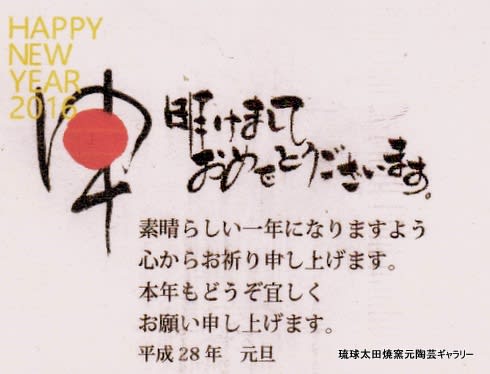 HAPPY
NEW
YEAR
2016
申
明けまして
おめでとうございます。
素晴らしい一年になりますよう
心からお祈り申し上げます。
本年もどうぞ宜しく
お願い申し上げます。
平成28年 元旦
琉球太田焼窯元陶芸ギャラリー